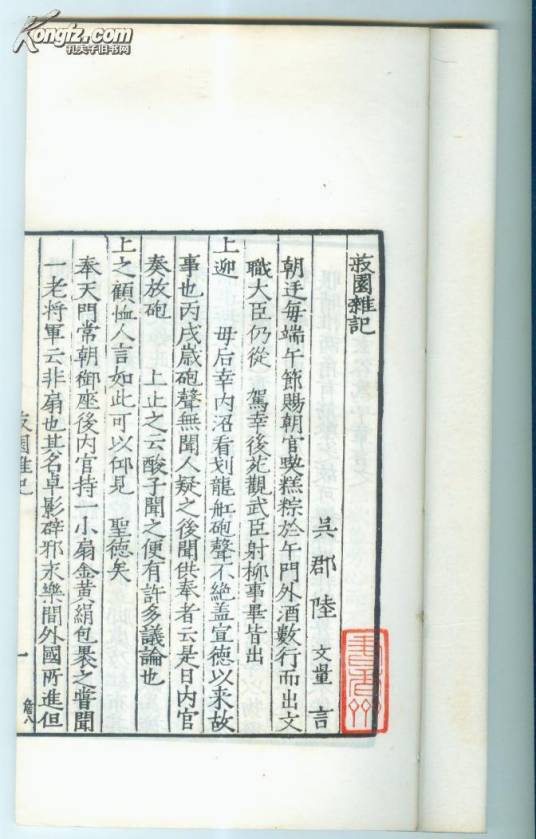 Kongfz.com
孔夫子旧书网
菽園雜記
吳郡陸文量言
朝廷每端午節賜朝官喫糕粽於午門外酒數行而出文
職大臣仍從　駕幸後苑觀武臣射柳事畢皆出
上迎　母后幸內沼看划龍舡砲聲不絶盖宣德以來故
事也丙戌歲砲聲無聞人疑之後聞供奉者云是日內官
奏放砲　上止之云酸子聞之便有許多議論也
上之顧恤人言如此可以仰見　聖德矣
奉天門常朝御座後內官持一小扇金黃絹包裹之嘗聞
一老將軍云非扇也其名卓影辟邪永樂間外國所進但
菽園雜記
一